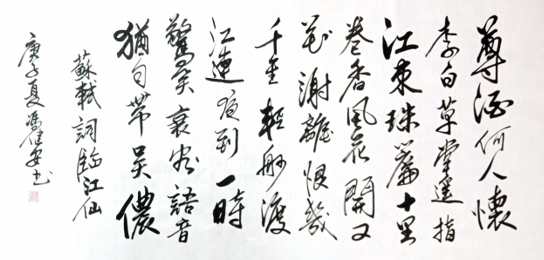 尊酒何人懷
李白草堂遥指
江東珠簾十里
卷香風花開又
花謝離恨幾
千重輕舸渡
江連夜到一時
驚笑衰容語音
猶自帶吳儂
蘇軾詞臨江仙
庚子夏馮安书